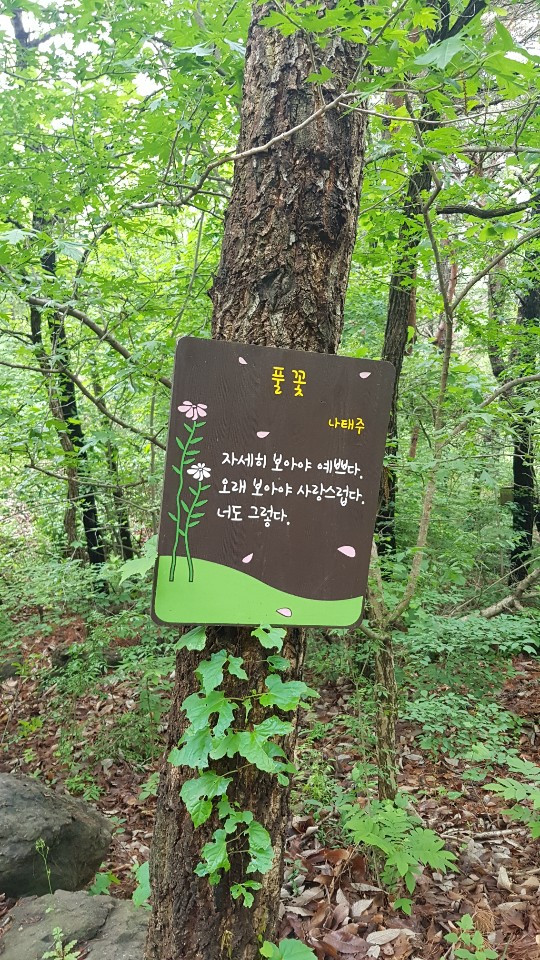 풀꽃
나태주
자세히 보아야 예쁘다.
오래 보아야 사랑스럽다.
너도 그렇다.